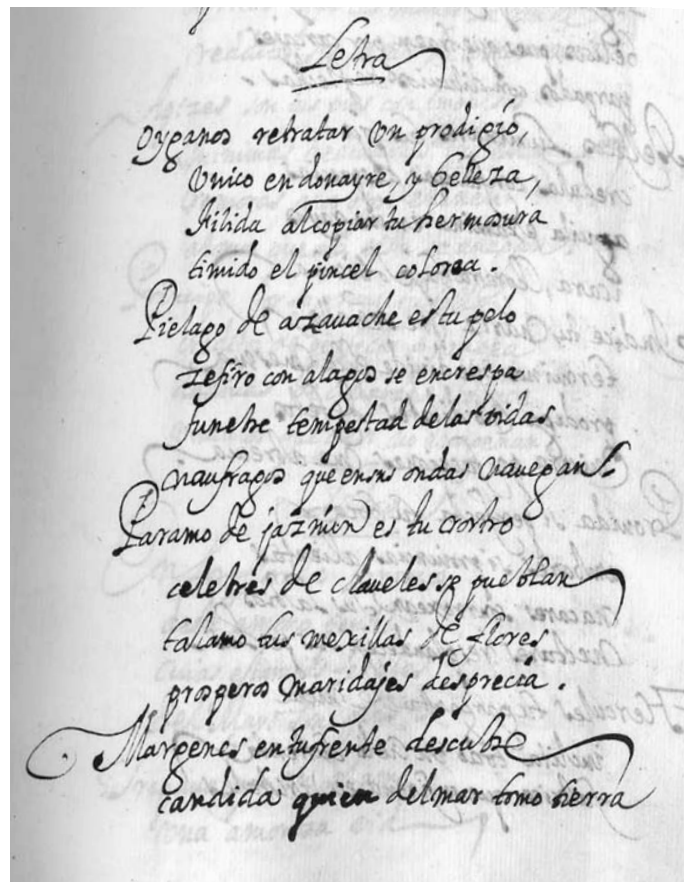 Letra
oyganos retratar vn prodigio,
vnico en donayre, y belleza,
filida al copiar tu hermosura
timido el pincel colorea.
Pielago de azauache es tu pelo
zefiro con alagos se encrespa
funebre tempestad de las vidas
naufragos que en sus ondas nauegan
Paramo de jazmin es tu rrostro
celebres de claueles se pueblan
talamo tus mexillas de flores
prosperos maridajes desprecia.
Margenes en tu frente descubre
candida quien del mar tomo tierra